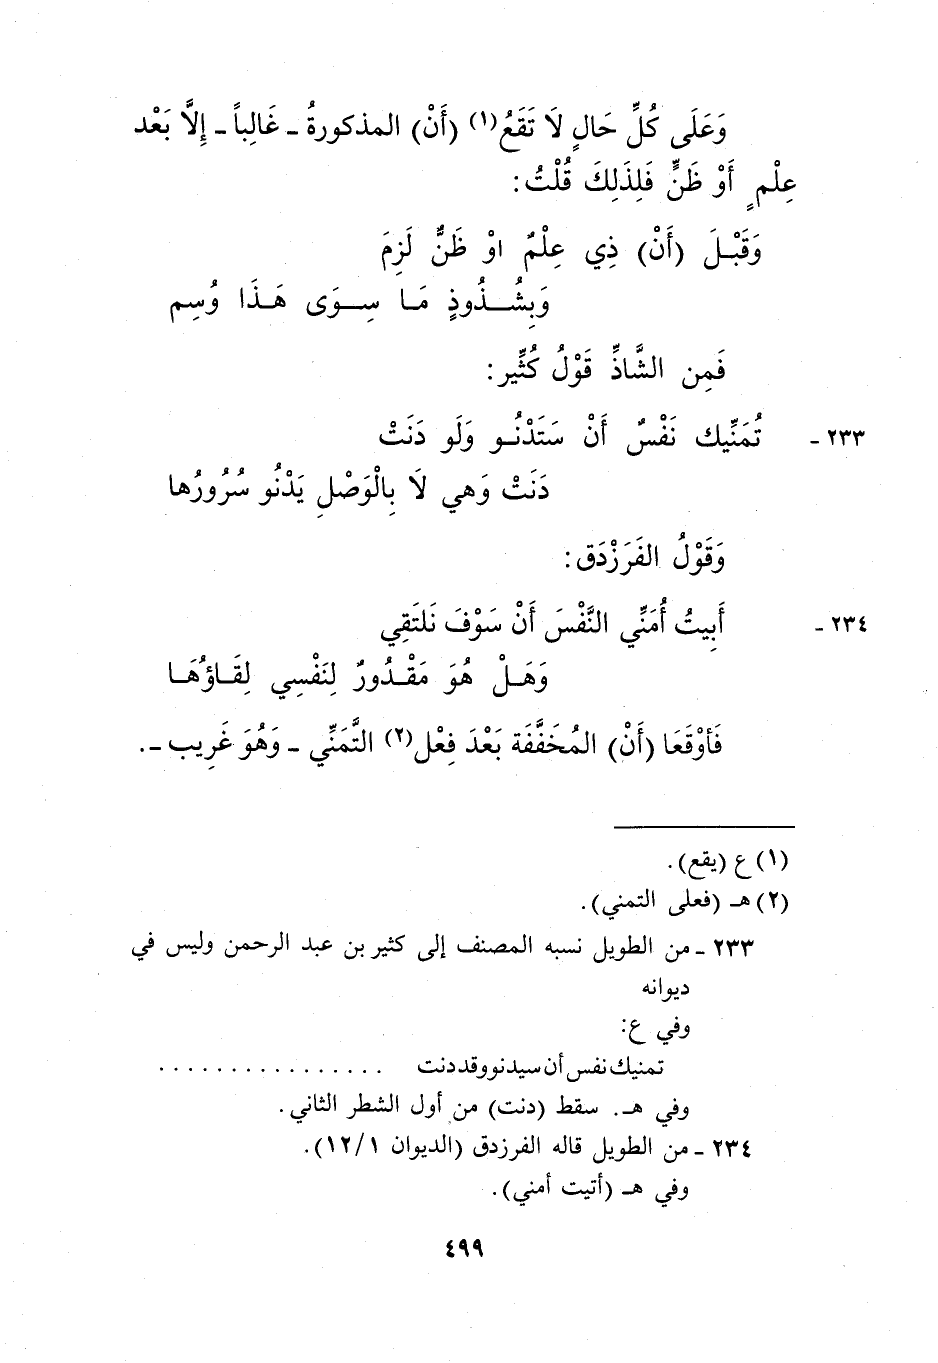 وَعَلَى كُلِّ حَالٍ لَا تَقَعُ(١) (أَنْ) المذكورةُ ـ غَالِباً ـ إِلَّا بَعْد
عِلْمٍ أَوْ ظَنٍّ فَلِذَلِكَ قُلْتُ:
وَقَبْلَ (أَنْ) ذِي عِلْمٌ اوْ ظَنٌّ لَزِمَ
وَبِشُذُوذٍ مَا سِوَى هَذَا وُسِم
فَمِن الشَّاذِّ قَوْلُ كُثَيِّر:
٢٣٣ ـ تُمَنِّيك نَفْسٌ أَنْ سَتَدْنُو وَلَو دَنَتْ
دَنَتْ وَهي لَا بِالْوَصْلِ يَدْنُو سُرُورُها
وَقَوْلُ الفَرَزْدَق:
٢٣٤ ـ أَبِيتُ أُمَنِّي النَّفْسَ أَنْ سَوْفَ نَلتَقِي
وَهَلْ هُوَ مَقْدُورٌ لِنَفْسِي لِقَاؤُهَا
فَأوْقَعَا (أَنْ) المُخَفَّفَة بَعْدَ فِعْل(٢) التَّمَنِّي ـ وَهُوَ غَرِيب ـ.
(١) ع (يقع).
(٢) هـ (فعلى التمني).
٢٣٣ ـ من الطويل نسبه المصنف إلى كثير بن عبد الرحمن وليس في
ديوانه
وفي ع:
تمنيك نفس أن سيدنو وقد دنت . . . . . . . . . . . . . . . .
وفي هـ. سقط (دنت) من أول الشطر الثاني.
٢٣٤ ـ من الطويل قاله الفرزدق (الديوان ١٢/١).
وفي هـ (أتيت أمني).
٤٩٩